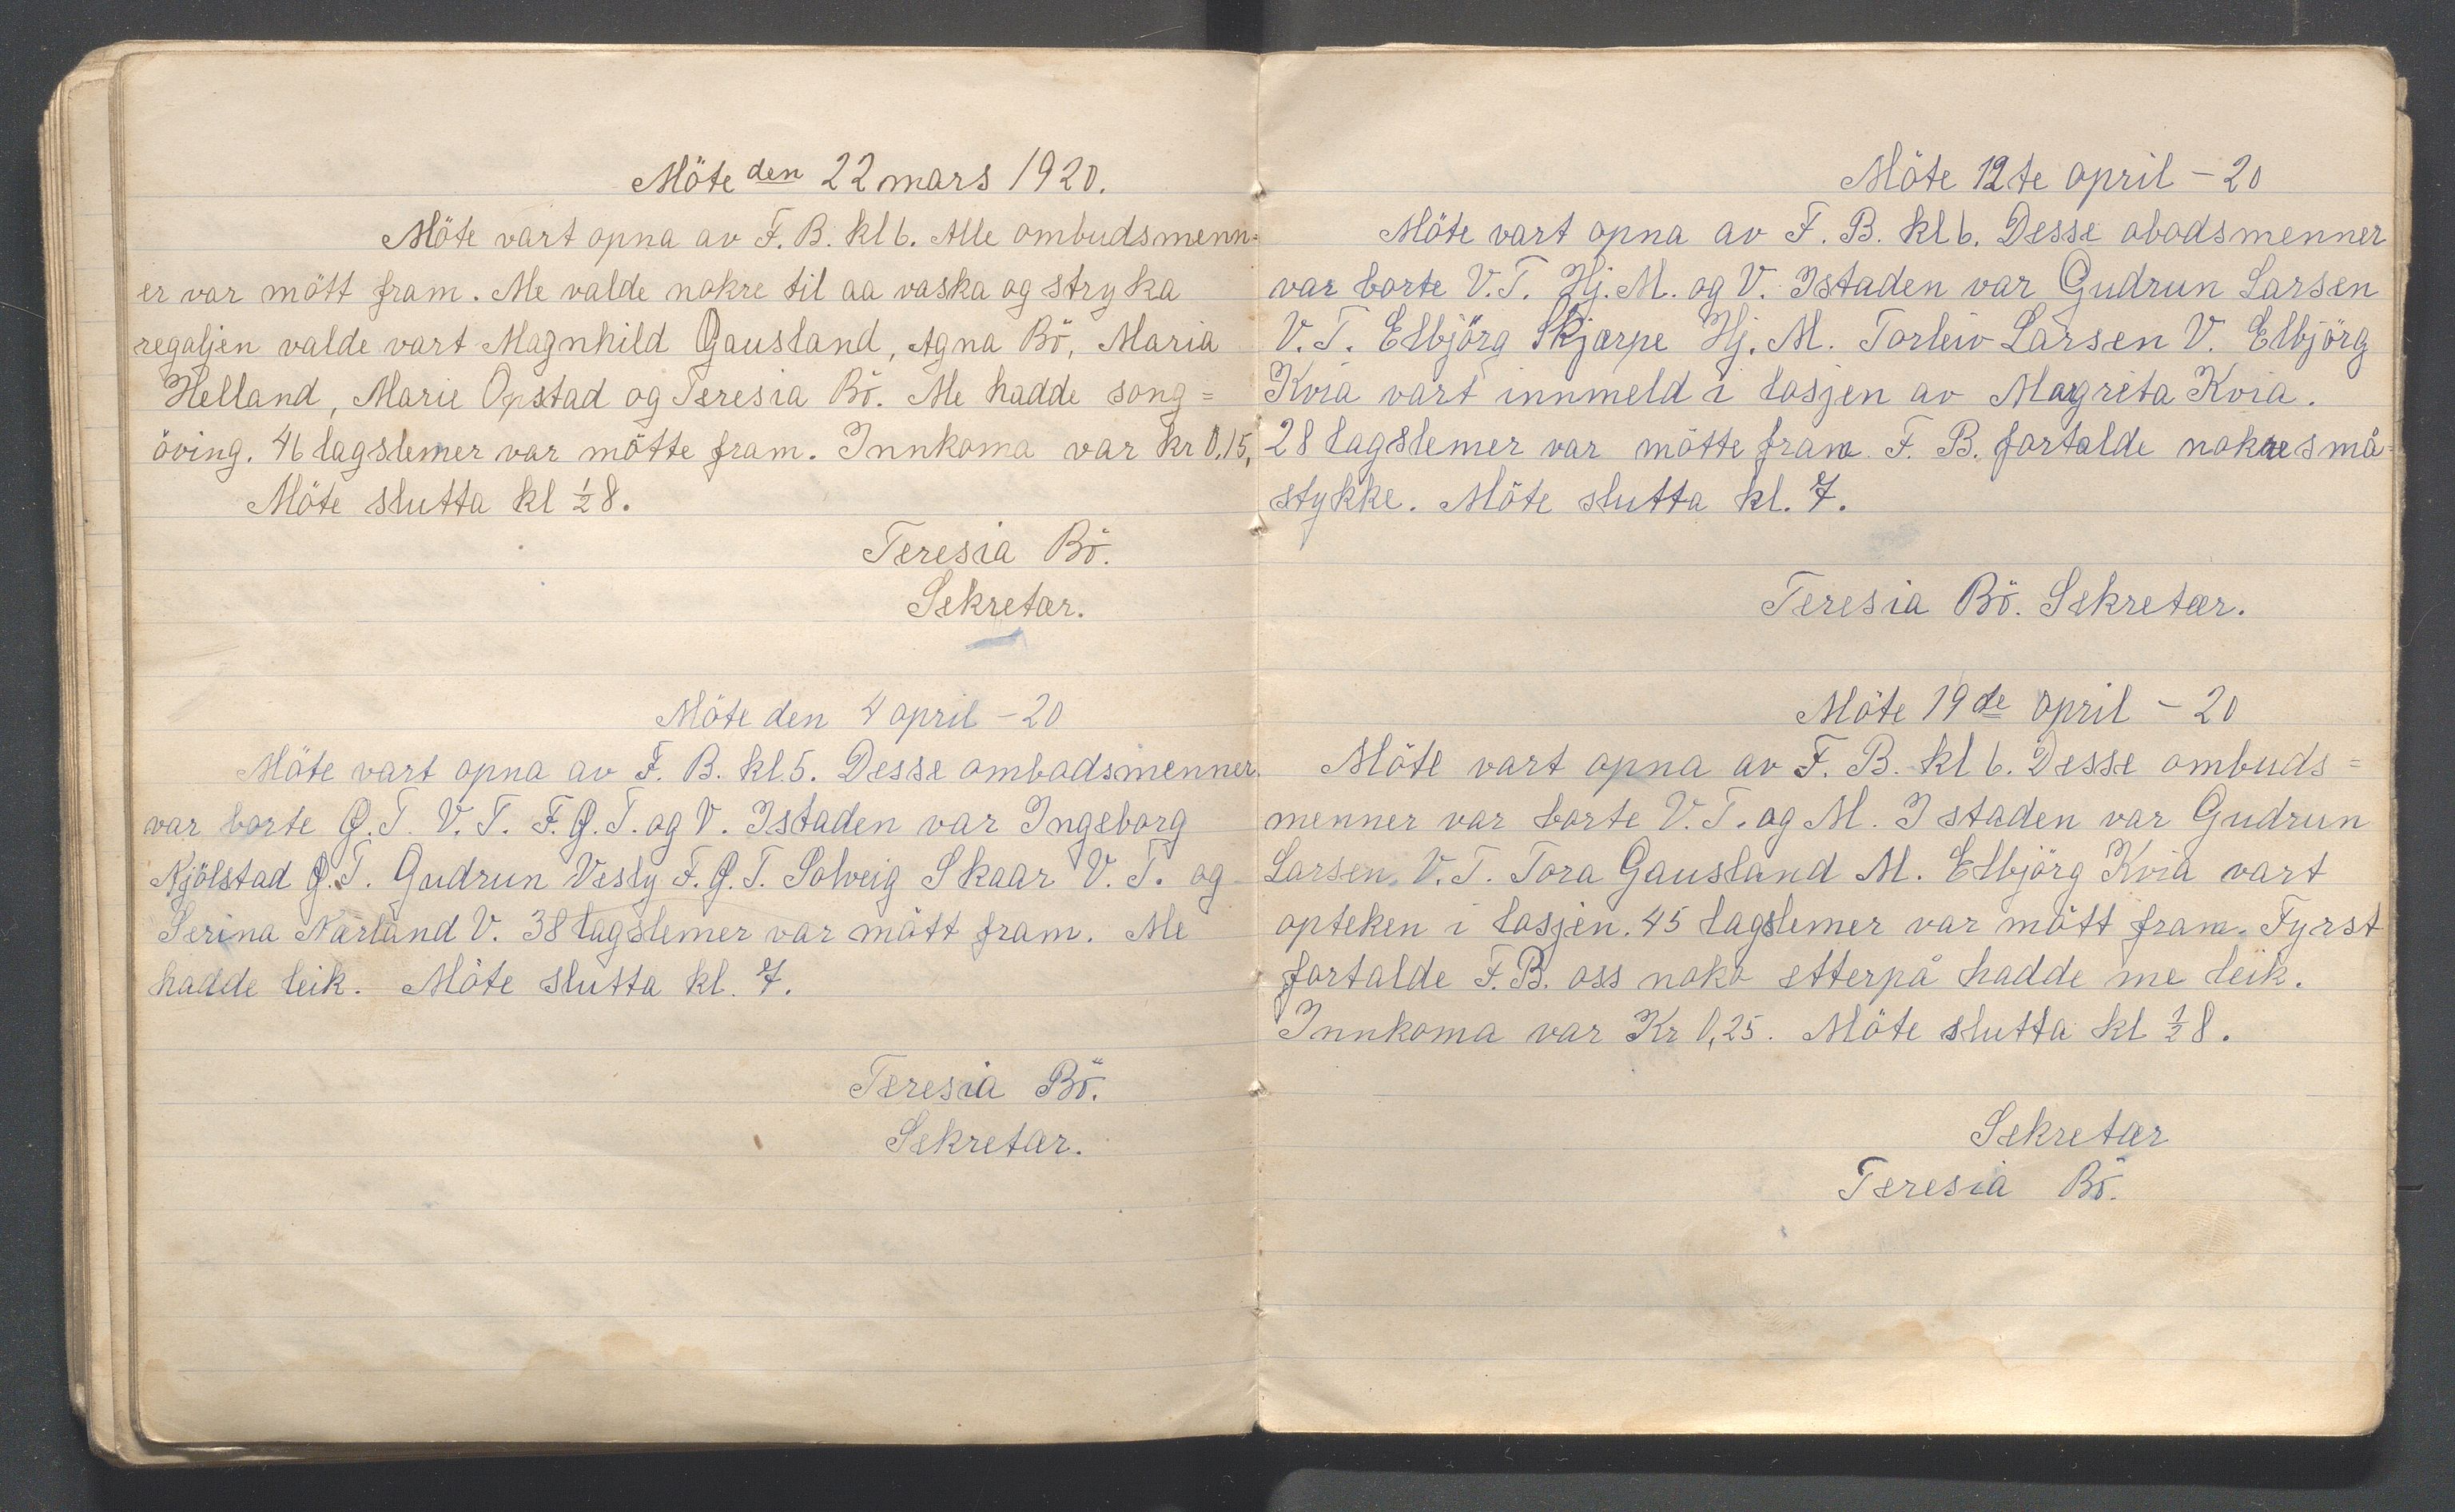 Möte den 22 mars 1920.
Möte vart opna av F. B. kl 6. Alle ombudsmenn=
er var mött fram. Me valde nokre til aa vaska og stryka
regaljen valde vart Magnhild Gausland, Agna Bö, Maria
Helland, Marie Opstad og Teresia Bö. Me hadde song=
öving. 46 lagslemer var mötte fram. Innkoma var kr 0,15,
Möte slutta kl ½ 8.
Teresia Bö.
Sekretær.
Möte den 4 april - 20
Möte vart opna av F. B. kl. 5. Desse ombodsmenner
var borte G. T. V. T. F. G. T. og V. Istaden var Ingeborg
Njölstad G. T. Gudrun Vesly F. G. T. Solveig Skaar V. T. og
Serina Narland V. 38 lagslemer var mött fram. Me
hadde leik. Möte slutta kl. 7.
Teresia Bö.
Sekretær.
Möte 12te april - 20
Möte vart opna av F. B. kl 6. Desse obodsmenner
var borte V. T. Hj. M. og V. Istaden var Gudrun Larsen
V. T. Elbjörg Skjærpe Hj. M. Torleiv Larsen V. Elbjörg
Kvia vart innmeld i losjen av Magreta Kvia.
28 lagslemer var mötte fram. F. B. fortalde nokre små=
stykke. Möte slutta kl. 7.
Teresia Bö. Sekretær.
Möte 19de april - 20
Möte vart opna av F. B. kl 6. Desse ombuds=
menner var borte V. T. og M. I staden var Gudrun
Larsen, V. T. Tora Gausland M. Elbjörg Kvia vart
opteken i losjen. 45 lagslemer var mött fram. Fyrst
fortalde F. B. oss noko etterpå hadde me leik.
Innkoma var Kr 0,25. Möte slutta kl ½ 8.
Sekretær
Teresia Bö.